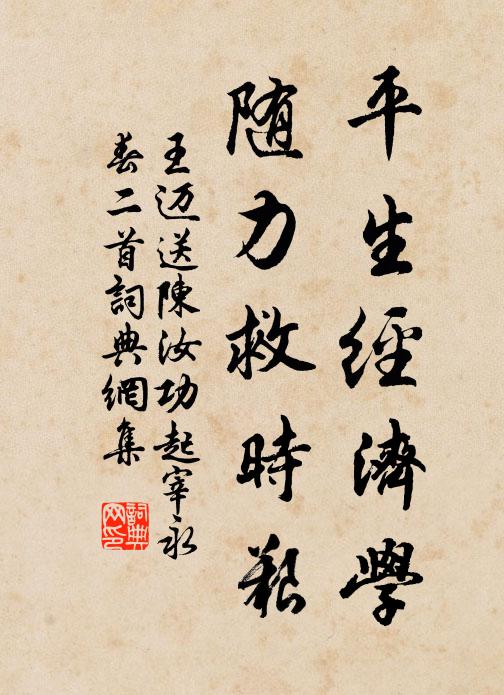 平生經濟學
随力救時艱
王迈送陳汝功起宰永
春二首詞典網集
詞典
网印